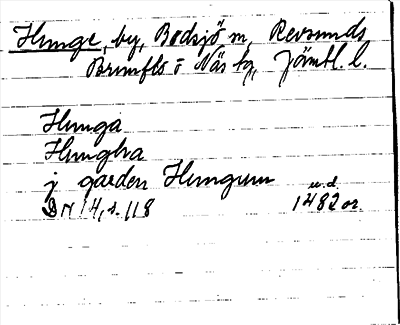 Hunge, by, Bodsjö sn, Revsunds
Brunflo o Näs tg, Jämtl. l.
Hunga
Hungha
j garden Hungum
u.d.
DN 14, s. 118 1482 or.